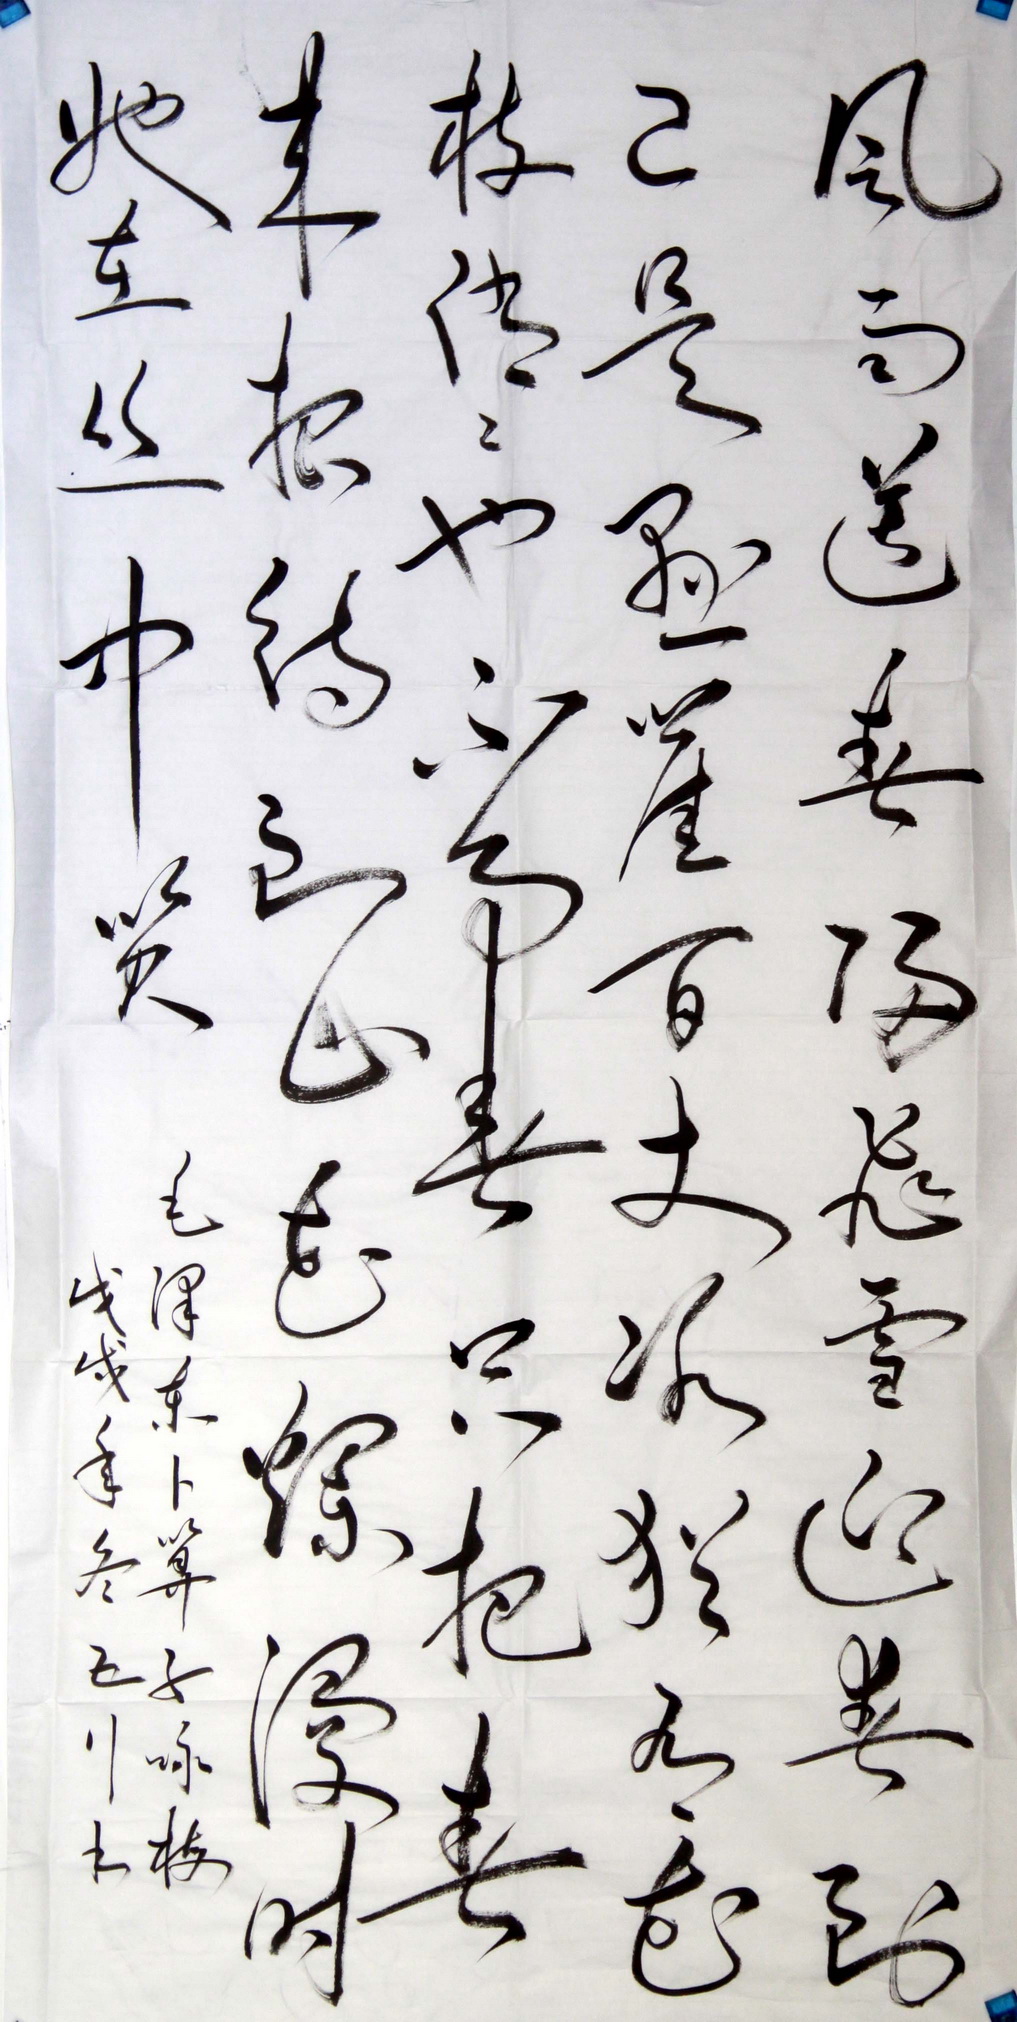 风雨送春归飞雪迎春到
已是悬崖百丈冰犹有花
枝俏々也不争春只把春
来报待到山花烂漫时
她在丛中笑
毛泽东卜算子咏梅
戊戌年冬川书